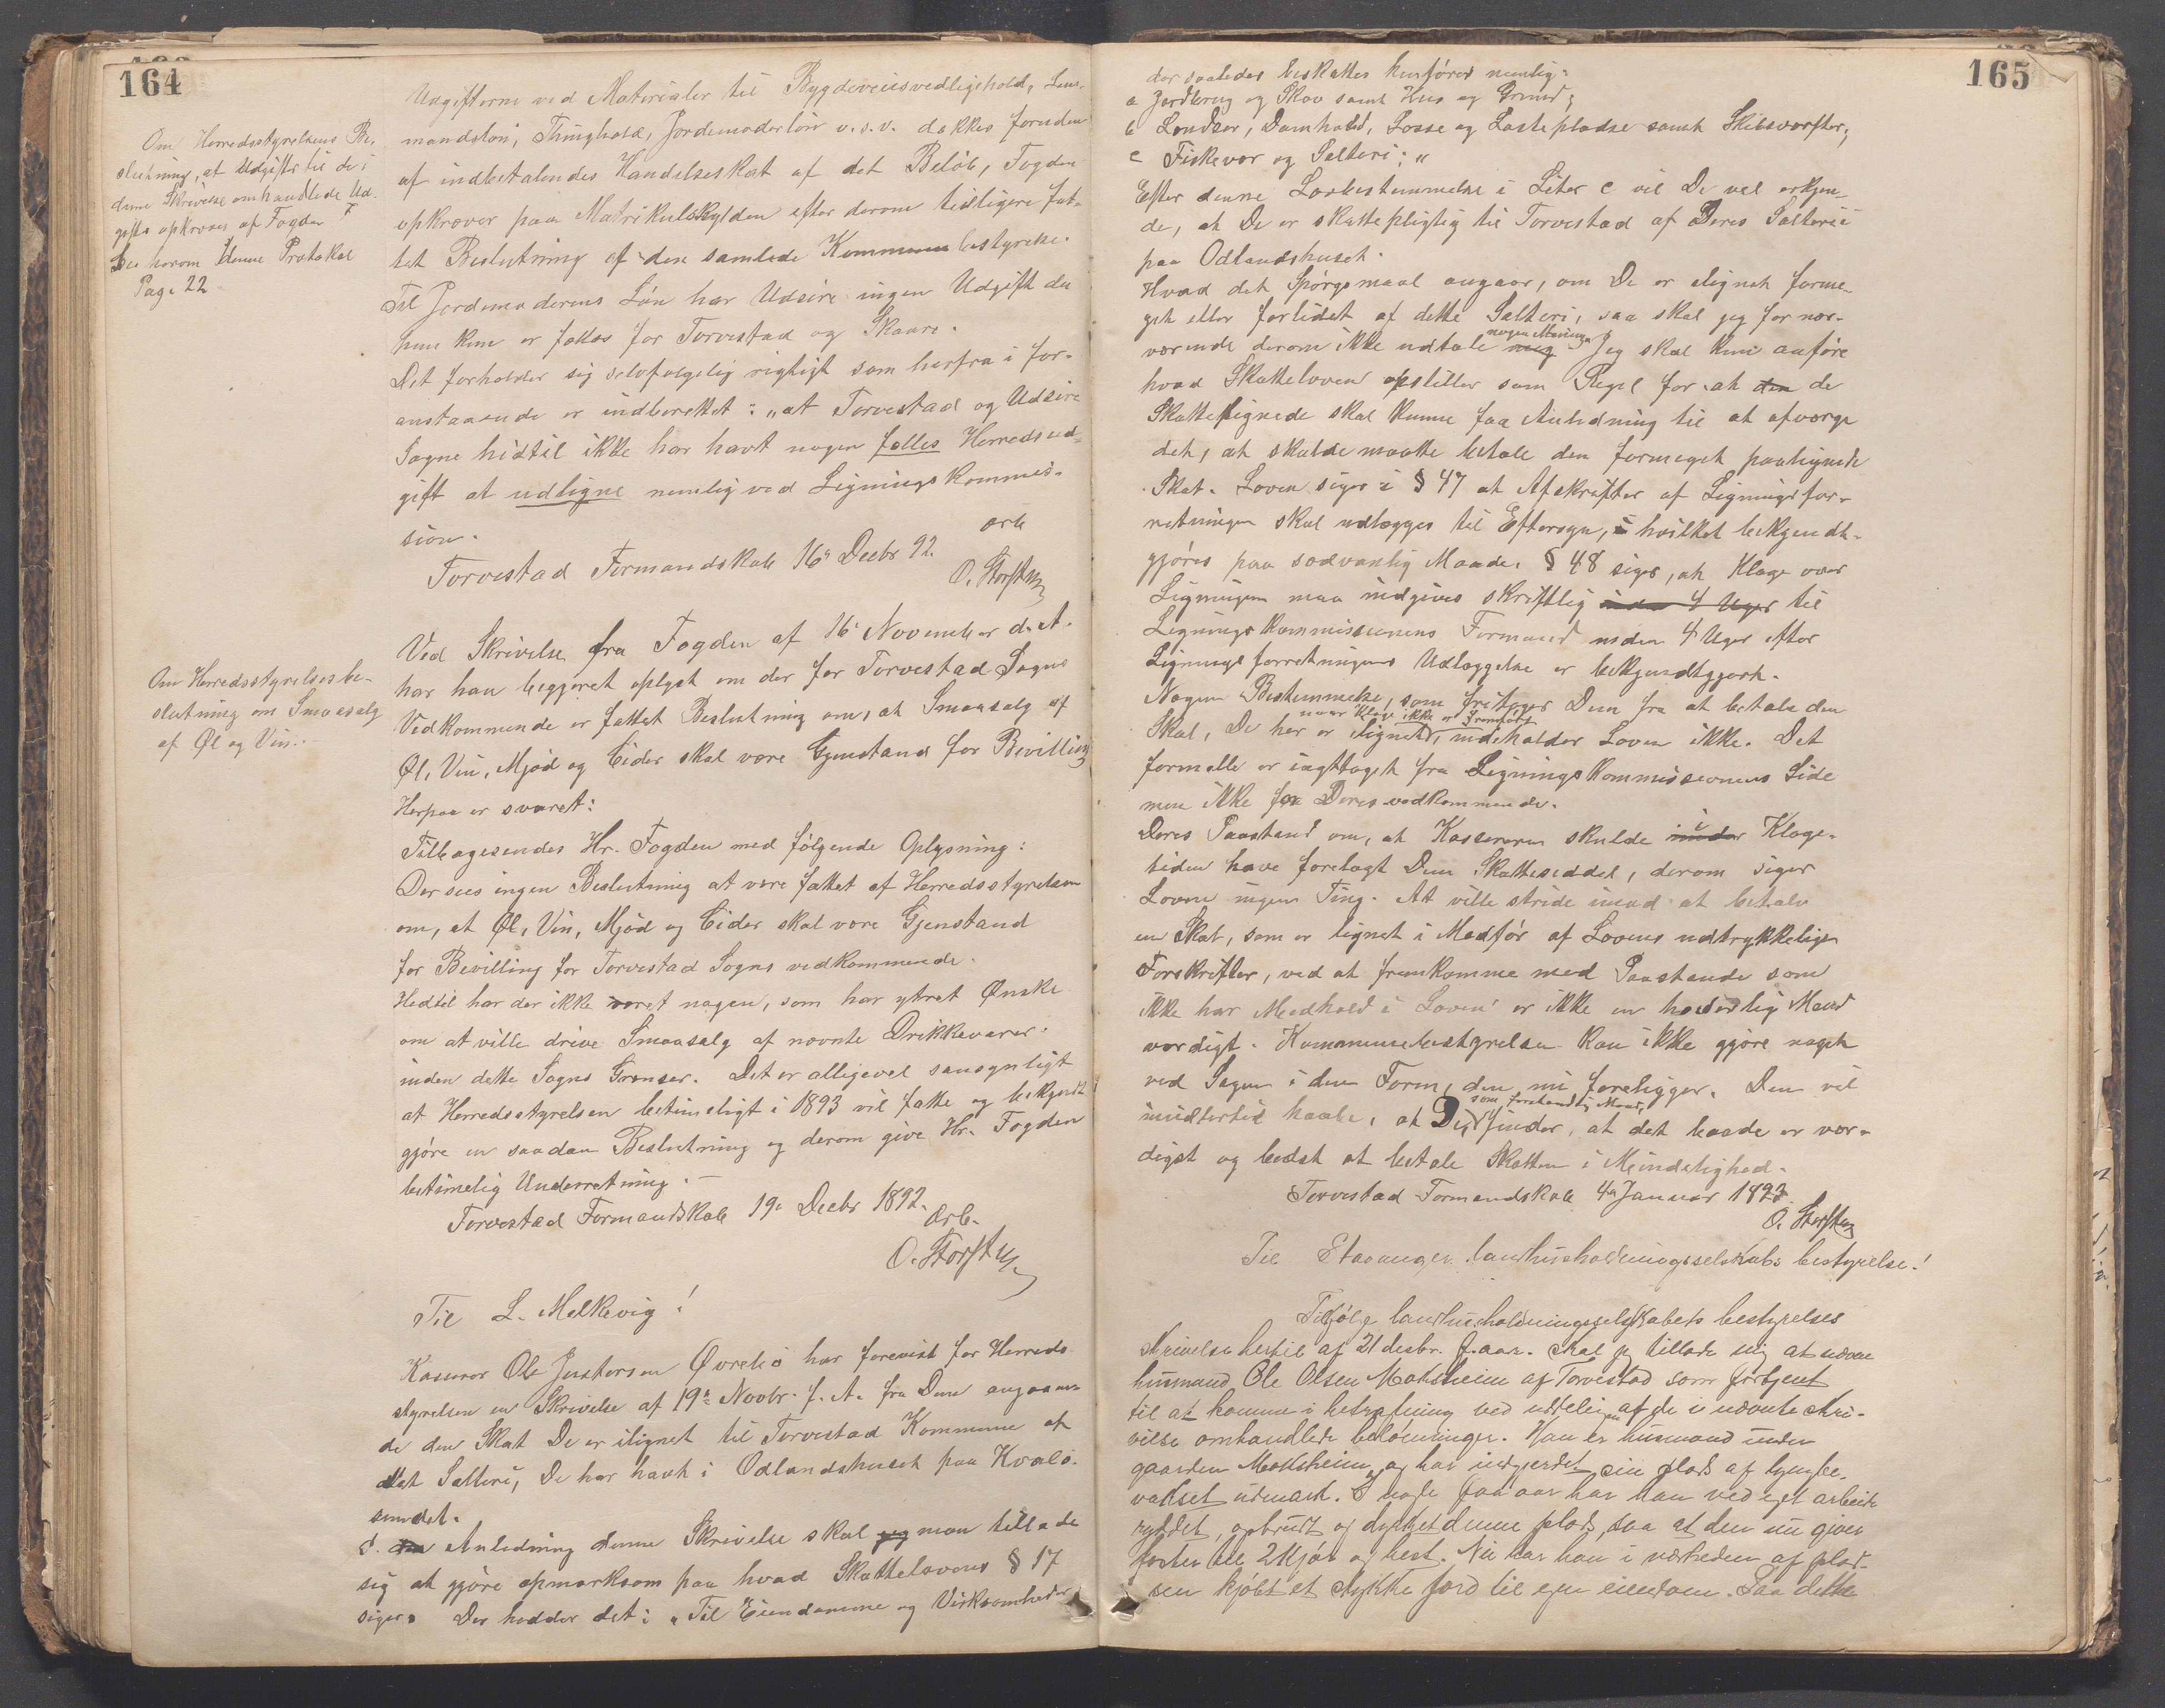 164
Om Herredsstyrelsens Be-
slutning, at Udgifter til de i
denne Skrivelse omhandlede Ud-
gifter opkræves af Fogden
See herom denne Protokol
Page 22
Udgifterne ved Materialer til Bygdeveiesvedligehold, Lens-
mandsløn, Thinghold, Jordemoderløn o.s.v. dækkes foruden
af indbetalendes Handelsskat af det Beløb, Fogden
opkræver paa Matrikulskylden efter derom tidligere fat-
tet Beslutning af den samlede Kommunebestyrelse.
Til Jordemoderens Løn har Udsire ingen Udgift da
hun kun er fælles for Torvestad og Skaare.
Det forholder sig selvfølgelig rigtigt som herfra i for-
anstaaende er indberettet: "at Torvestad og Udsire
Sogne hidtil ikke har havt nogen fælles Herredsud-
gift at udligne nemlig ved Ligningskommis-
sion.
Torvestad Formandskab 16 Decbr 92.
ærb
O. Storsten
Om Herredsstyrelsesbe-
slutning om Smaasalg
af Øl og Vin.
Ved Skrivelse fra Fogden af 16 November d. A.
har han begjæret oplyst om der for Torvestad Sogns
Vedkommende er fattet Beslutning om, at Smaasalg af
Øl, Vin, Mjød og Cider skal være Gjenstand for Bevilling
Herpaa er svaret:
Tilbagesendes Hr. Fogden med følgende Oplysning:
Der sees ingen Beslutning at være fattet af Herredsstyrelsen
om, at Øl, Vin, Mjød og Cider skal være Gjenstand
for Bevilling for Torvestad Sogns vedkommende.
Hidtil har der ikke været nogen, som har ytret Ønske
om at ville drive Smaasalg af nævnte Drikkevarer
inden dette Sogns Grænser. Det er alligevel sansynligt
at Herredsstyrelsen betimeligt i 1893 vil fatte og bekjendt
gjøre en saadan Beslutning og derom give Hr. Fogden
betimelig Underretning. —
Torvestad Formandskab 19 Decbr 1892.
Ærb.
O. Storsten
Til L. Melkevig!
Kasserer Ole Justersen Øvrebø har forevist for Herreds
styrelsen en Skrivelse af 19 Novbr. f. A. fra Dem angaaen-
de den Skat De er ilignet til Torvestad Kommune af
det Salteri, De har havt i Odlandshuset paa Kvalø-
sundet.
I Anledning denne Skrivelse skal jeg man tillade
sig at gjøre opmærksom paa hvad Skattelovens § 17
siger. Der hedder det: "Til Eiendomme og Virksomheder
165
der saaledes beskattes henføres nemlig:
a Jordbrug og Skov samt Hus og Grund;
b Damhold, Losse og Lastepladse samt Skibsværfter;
c Fiskevær og Salteri; "
Efter denne Lovbestemmelse i Liter c vil De vel erkjen-
de, at De er skattepligtig til Torvestad af Deres Salteri
paa Odlandshuset.
Hvad det Spørgsmaal angaar, om De er ilignet forme-
get eller forlidet af dette Salteri, saa skal jeg for nær-
værende derom ikke udtale nogen Mening Jeg skal kun anføre
hvad Skatteloven opstiller som Regel for at den de
Skattelignede skal kunne faa Anledning til at afværge
det, at skulde maatte betale den formeget paalignede
Skat. Loven siger i § 47 at Afskrifter af Ligningsfor-
retningen skal udlægges til Eftersyn, i hvilket bekjendt-
gjøres paa sædvanlig Maade. § 48 siger, at Klage over
Ligningen maa indgives skriftlig inden 4 Uger til
Ligningskommissionens Formand inden 4 Uger efter
Ligningsforretningens Udlæggelse er bekjendtgjort.
Nogen Bestemmelse, som fritager Dem fra at betale den
Skat, De her er ilignet, naar Klage ikke er fremført, indeholder Loven ikke. Det
formelle er iagttaget fra Ligningskommissionens Side
men ikke fra Deres vedkommende.
Deres Paastand om, at Kassereren skulde inden i Klage-
tiden have forelagt Dem Skattesedlel, derom siger
Loven ingen Ting. At ville stride imod at betale
en Skat, som er lignet i Medfør af Lovens udtrykkelige
Forskrifter, ved at fremkomme med Paastande som
ikke har Medhold i Loven er ikke en hæderlig Mand
værdigt. Kommunebestyrelsen kan ikke gjøre noget
ved Sagen i den Form, den nu foreligger. Den vil
imidlertid haabe, at De, som forstandig Mand, finder, at det baade er vær-
digst og bedst at betale Skatten i Mindelighed.
Torvestad Formandskab 4 Januar 1893.
O. Storsten
Til Stavanger landhusholdningsselskabs bestyrelse!
Tilfølge landhusholdningsselskabets bestyrelses
skrivelse hertil af 21 decbr. f. aar. skal jeg tillade mig at nævne
husmand Ole Olsen Moksheim af Torvestad som fortjent
til at komme i betragtning ved uddelingen af de i nævnte skri-
velse omhandlede belønninger. Han er husmand under
gaarden Moksheim og har indgjerdet sin plads af lyngbe-
vokset udmark. I nogle faa aar har han ved eget arbeide
ryddet, opbrudt og dyrket denne plads, saa at den nu giver
foster til 2 kjør og hest. Nu har han i nærheden af plad-
sen kjøbt et stykke jord til egen eiendom. Saa dette